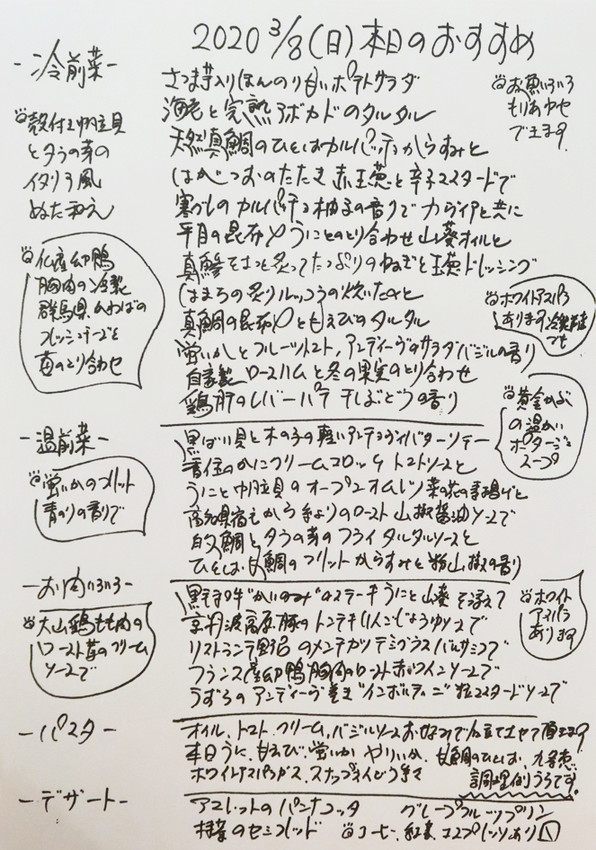 2020 3/8(日)本日のおすすめ
-冷前菜-
さつま芋入りほんのり甘いポテトサラダ
海老と完熟アボカドのタルタル
天然真鯛のひとはカルパッチョからすみと
はがつおのたたき 赤玉葱と辛子マスタードで
寒ぶりのカルパッチョ柚子の香りで カライアと共に
平目の昆布〆うにとのとり合わせ 山葵オイルと
真鯵をさっと炙ってたっぷりのねぎと玉葱ドレッシング
はまちの炙りルッコラの
真鯛の昆布〆ともえびのタルタル
蛍いかとフルーツトマト,アンディーヴのサラダバジルの香り
自家製ロースハムと冬の果実のとり合わせ
鶏肝のレバーパテ 干しぶどうの香り
お魚いろいろ
もりあわせ
できます
殻付き帆立貝
とタラの芽の
イタリア風
ぬた和え
仏産幼鴨
胸肉の冷製
群馬県
フレッシュチーズと
苺のとり合わせ
ホワイトアスパラ
あります冷製
です
黄金かぶ
の温かい
ポタージュ
スープ
-温前菜-
黒ばい貝と木の子の軽いアンチョヴィバターソテー
香住のかにクリームコロッケ トマトソースと
うにと帆立貝のオーブンオムレツ菜の花の素揚げと
高知県宿毛からきよりのロースト 山椒醤油ソースで
白魚とタラの芽のフライ タルタルソースと
ひとしほ甘鯛のフリット からすみと粉山椒の香り
蛍いかのフリット
青のりの香りで
-お肉いろいろ-
黒毛和牛"かいのみ"のステーキうにと山葵を添えて
京丹波高原豚のトンテキ りんごじょうゆソースで
リストランテ野呂のメンチカツ デミグラスバルサミコで
フランス産幼鴨胸肉のロースト赤ワインソースで
うずらのアンディーヴ巻き"インボルティーニ"粒マスタードソースで
大山鶏もも肉の
ロースト苺のクリーム
ソースで
ホワイト
アスパラ
あります
-パスタ-
オイル、トマト、クリーム、バジルソースお好みで仕立てさせて頂きます
本日うに、甘えび、蛍いか、やりいか、甘鯛のひとしお、九条葱
ホワイトアスパラガス、スナップえんどう等々
調理例うらです!
-デザート-
アマレットのパンナコッタ
グレープフルーツプリン
林檎のセミフレッド
コーヒー、紅茶、エスプレッソあり〼